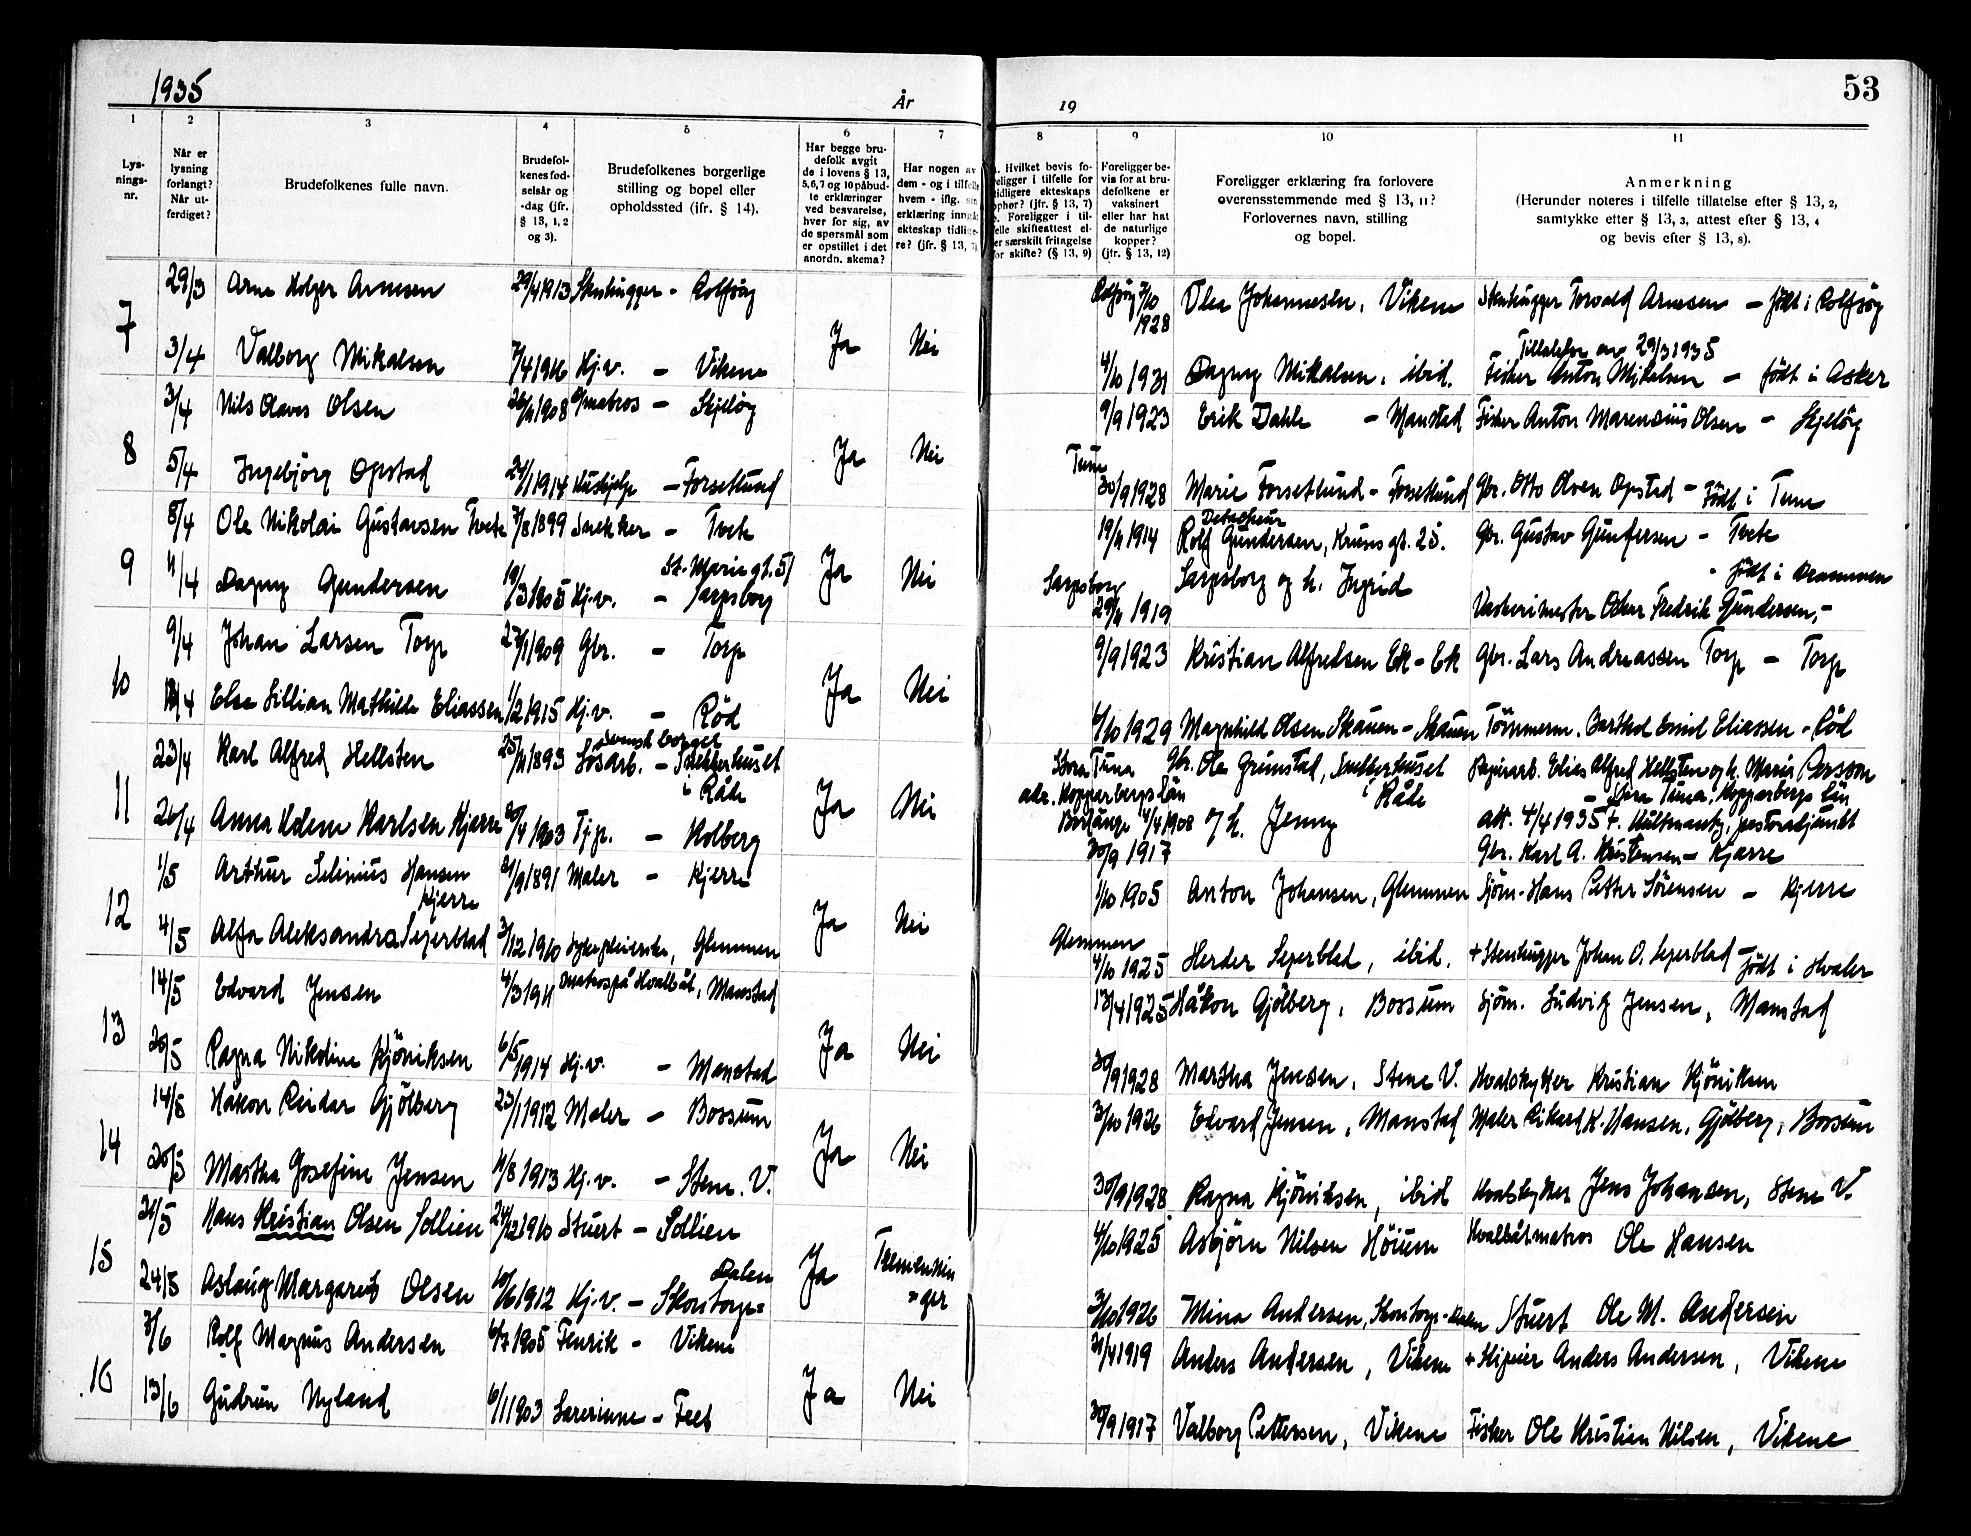 1935
År
19
53
1 2 3 4 5 6 7 8 9 10 11
Lys-
nings-
nr.
Når er
lysning
forlangt?
Når ut-
ferdiget?
Brudefolkenes fulle navn.
Brudefol-
kenes fød-
selsår og
-dag (jfr.
§ 13, 1, 2
og 3).
Brudefolkenes borgerlige
stilling og bopel eller
opholdssted (ifr. § 14).
Har begge bru-
defolk avgit
de i lovens § 13,
5, 6, 7 og 10 påbud-
te erklæringer
ved besvarelse,
hver for sig, av
de spørsmål som
er opstillet i det
anordn. skema?
Har nogen av
dem - og i tilfelle
hvem - iflg. sin
erklæring inngått
ekteskap tidlige-
re? (jfr. § 13,
Hvilket bevis fo-
religger i tilfelle for
tidligere ekteskaps
ophør? (jfr. § 13, 7)
Foreligger i til-
felle skifteattest el-
ler særskilt fritagelse
for skifte? (§ 13, 9)
Foreligger be-
vis for at bru-
defolkene er
vaksinert
eller har hat
de naturlige
kopper?
(jfr. § 13, 12)
Foreligger erklæring fra forlovere
overensstemmende med § 13, 11?
Forlovernes navn, stilling
og bopel.
Anmerkning
(Herunder noteres i tilfelle tillatelse efter § 13, 2,
samtykke efter § 13, 3, attest efter § 13, 4
og bevis efter § 13, 8).
29/3 Arne Holger Arnesen 29/4 1913 Stenhugger - Rolfsøy Rolfsøy 7/10 1928 Olea Johannesen, Vikene Stenhugger Torvald Arnesen - født i Rolfsøy
7 3/4 Valborg Mikalsen 7/4 1916 Hj.v. - Vikene Ja Nei 4/10 1931 Dagny Mikalsen, ibid. Tillatelse av 29/3 1935
Fisker Anton Mikalsen - født i Asker
3/4 Nils Olaves Olsen 1908 matros - Skjeløy 9/9 1923 Erik Dahle - Manstad Fisker Anton Marensius Olsen - Skjeløy
8 5/4 Ingebjörg Opstad 24/1 1914 Hushjelp - Forsetlund Ja Nei Tune 30/9 1928 Marie Forsetlund - Forsetlund Gbr. Otto Olsen Opsted - Født i Tune
8/4 Ole Nikolai Gustavsen Tvete 7/8 1899 Snekker - Tvete 19/11 1914 Rolf Gundersen, Kruns gt. 25. Gbr. Gustav Gundersen - Tvete
9 11/4 Dagny Gundersen 19/3 1905 Hj.v. - St. Marie gt. 51 Sarpsborg Ja Nei Sarpsborg 29/11 1919 Sarpsborg og h. Ingrid - født i Drammen
Oskar Fredrik Gundersen, -
9/4 Johan Larsen Torp 27/1 1909 Gbr. - Torp 9/9 1923 Kristian Alfredsen Ek - Ek Gbr. Lars Andreassen Torp - Torp
10 /4 Else Lillian Mathilde Eliassen 1/2 1915 Hj.v. - Rød Ja Nei 4/10 1929 Magnhild Olsen Skauen - Skauen Tömmerm. Barthod Emil Eliassen - Rød
23/4 Karl Alfred Hellsten 25/11 1893 Løsarb. - Svensk borger Snekkerhuset i Råde Stora Tuna Gbr. Ole Grimstad, Snekkerhuset i Råde Papirarb. Elias Alfred Hellsten og h. Maria Persson
11 26/4 Anna Helene Karlsen Kjærre 1903 Tjp. - Kolberg Ja Nei Kopparbergs län Borlänge 4/4 1908 og h. Jenny Stora Tuna, Kopparbergs län
att. 4/4 1935 Hultmantz, pastorsadjunkt
30/9 1917 Gbr. Karl A. Kristensen - Kjærre
1/5 Arthur Selinius Hansen Kjerre 21/9 1891 Maler - Kjerre 1/10 1905 Anton Johansen, Glemmen Sjöm. Hans Petter Sørensen - Kjerre
12 4/5 Alfa Aleksandra Segerblad 3/12 1910 Sykepleierske, Glemmen Ja Nei Glemmen 4/10 1925 Herder Segerblad, ibid. + Stenhugger Johan O. Segerblad - Født i Hvaler
14/5 Edvard Jensen 4/3 1911 Matros på Hvalbåt, Manstad 13/4 1925 Håkon Gjölberg, Bossum Sjöm. Ludvig Jensen, Manstad
13 20/5 Ragna Nikoline Kjöniksen 6/5 1914 Hj.v. - Manstad Ja Nei 30/9 1928 Martha Jensen, Stene V. Hvalskytter Kristian Kjöniksen
14/5 Håkon Reidar Gjölberg 23/1 1912 Maler - Bossum 3/10 1926 Edvard Jensen, Manstad Maler Rikard K. Hansen, Gjölberg, Bossum
14 20/5 Martha Josefine Jensen 11/8 1913 Hj.v. - Stene. V. Ja Nei 30/9 1928 Ragna Kjöniksen, ibid Hvalskytter Jens Johansen, Stene V.
21/5 Hans Kristian Olsen Sollien 24/12 1910 Stuert - Sollien 4/10 1925 Asbjörn Nilsen Höium Hvalbåtmatros Ole Hansen
15 24/5 Aslaug Margaret Olsen 10/6 1912 Hj.v. - Skovtorp= dalen Ja Tremennin
=ger 3/10 1926 Mina Andersen, Skovtorp-dalen Stuert Ole M. Andersen
7/6 Rolf Magnus Andersen 6/7 1905 Fenrik - Vikene 21/4 1919 Anders Andersen, Vikene + Skipeier Anders Andersen, Vikene
16 13/6 Gudrun Nyland 6/1 1903 Lærerinne - Feet Ja Nei 30/9 1917 Valborg Pettersen, Vikene Fisker Ole Kristian Nilsen, Vikene